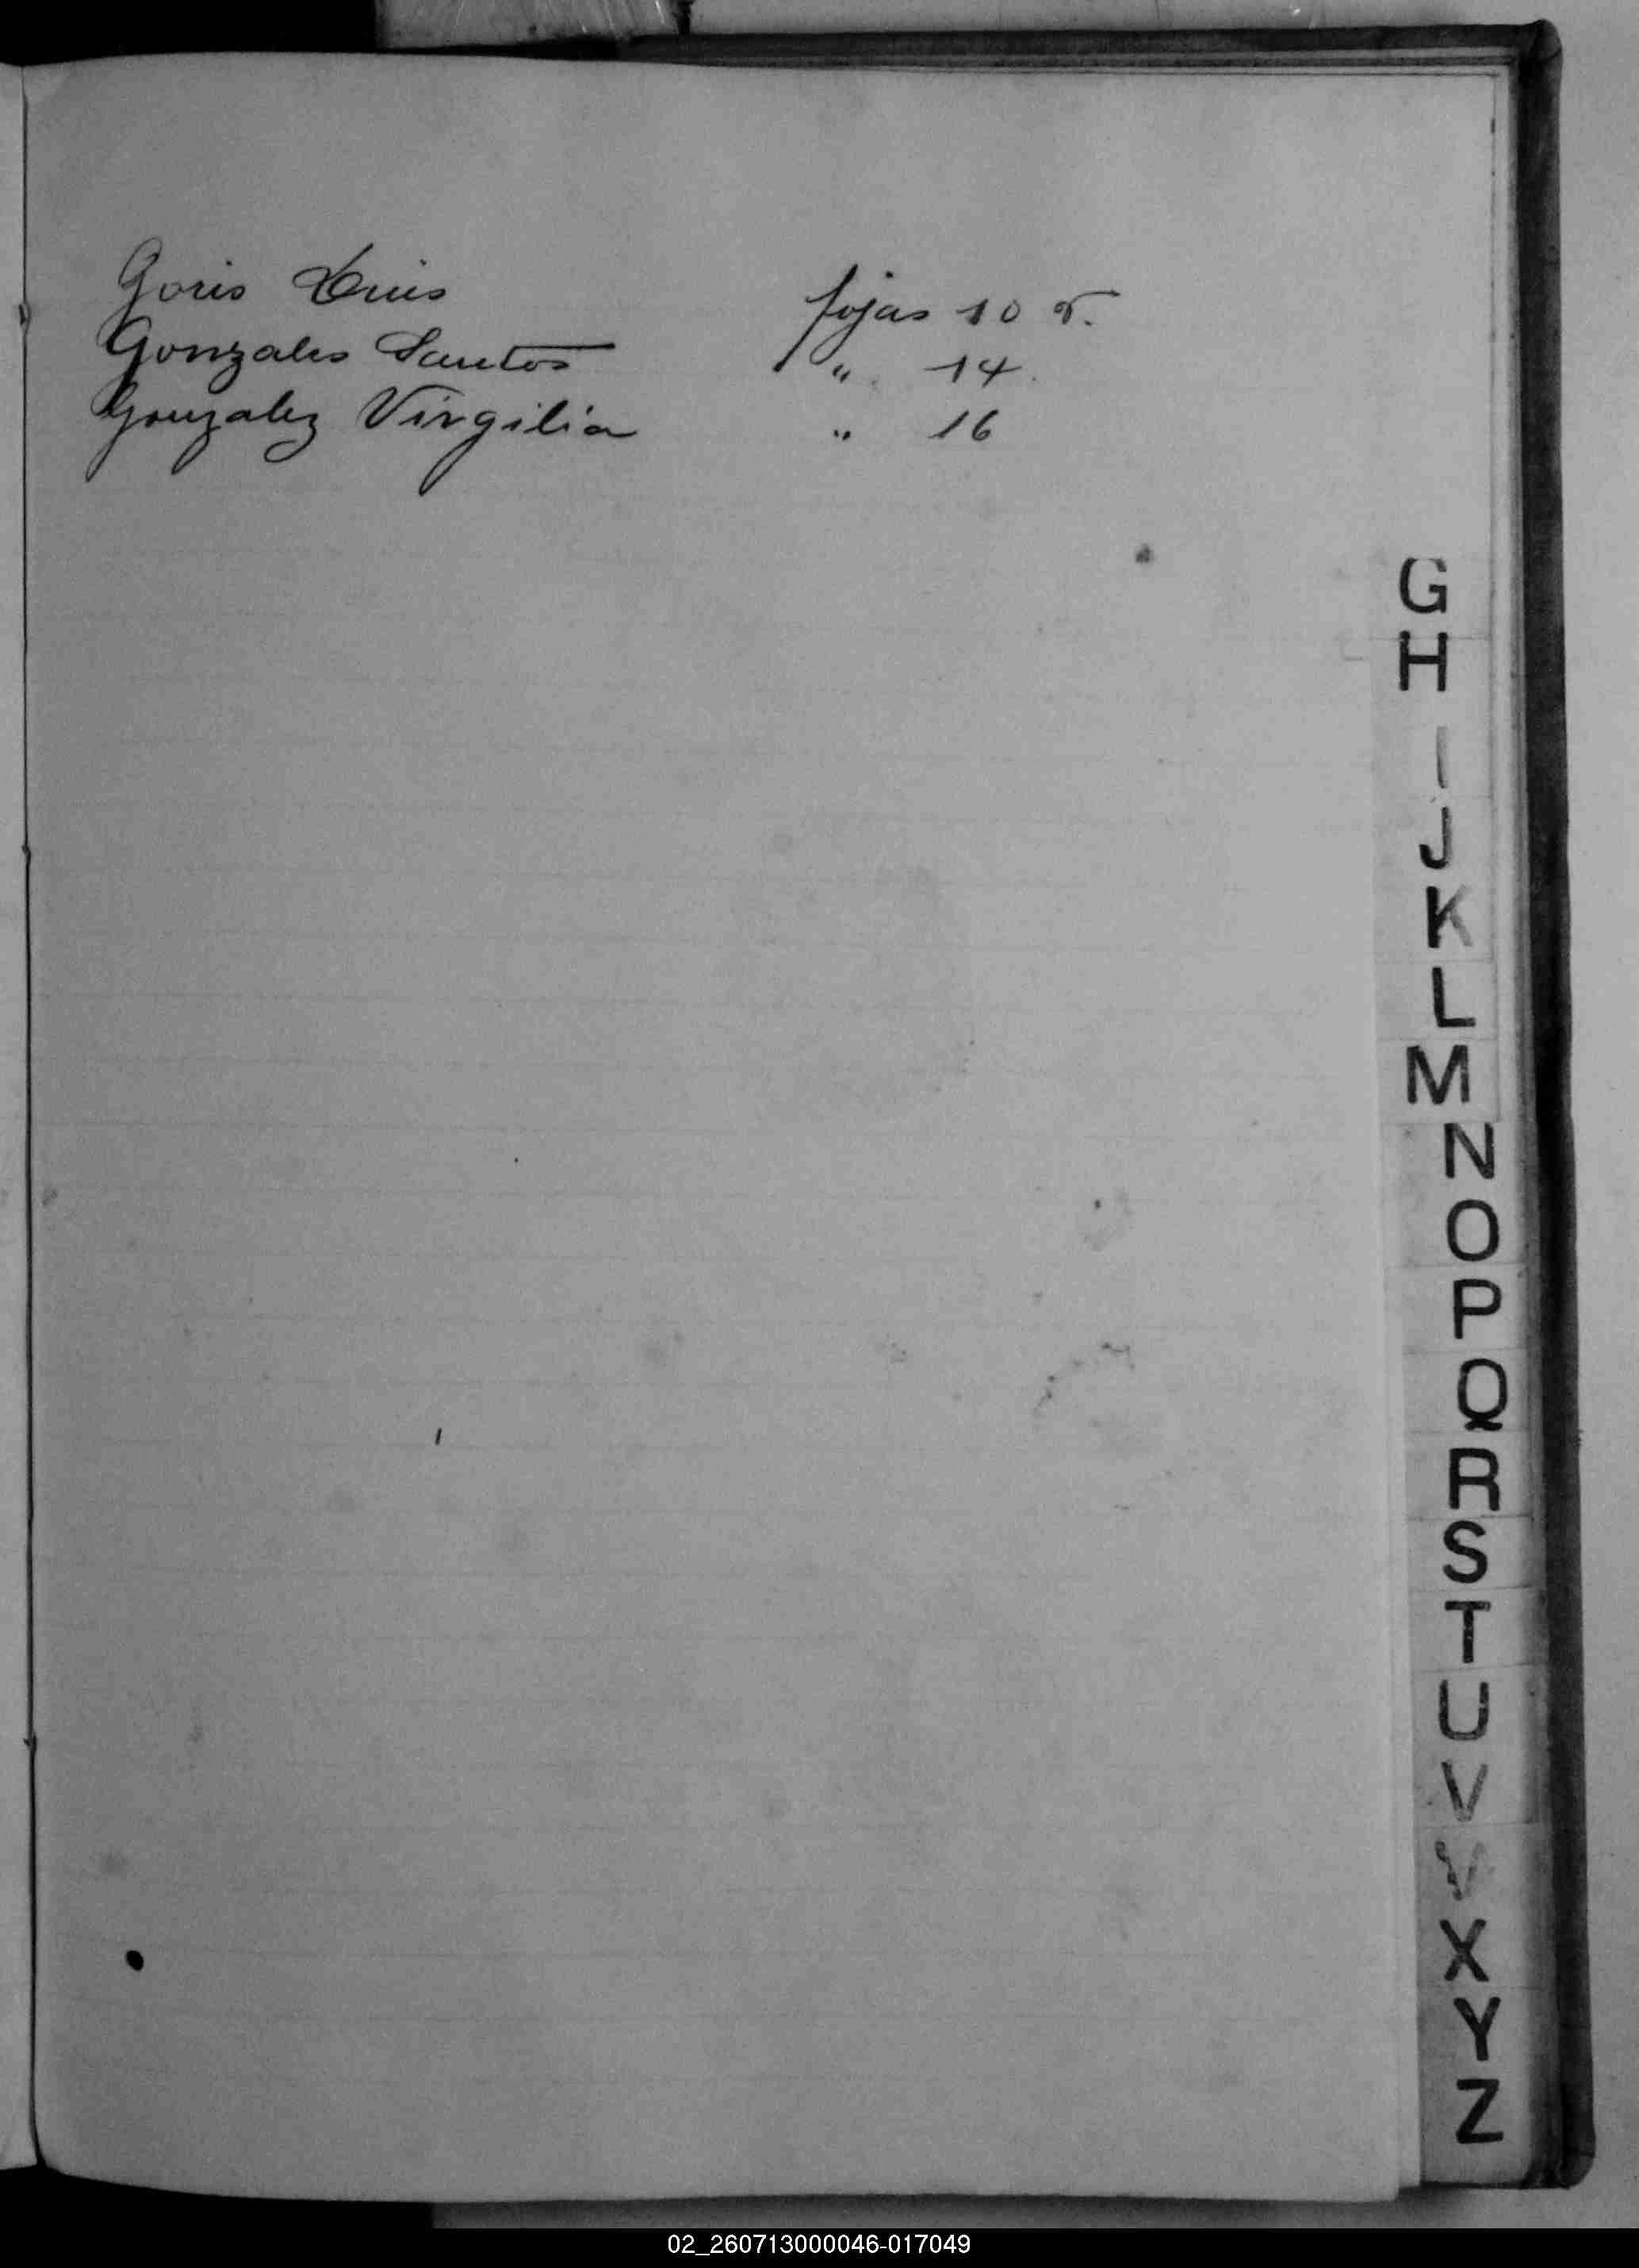 Goris Luis fojas 10 v.
Gonzales Santos " 14.
Gonzalez Virgilia " 16
G
H
I
J
K
L
M
N
O
P
Q
R
S
T
U
V
X
Y
Z
02_260713000046-017049